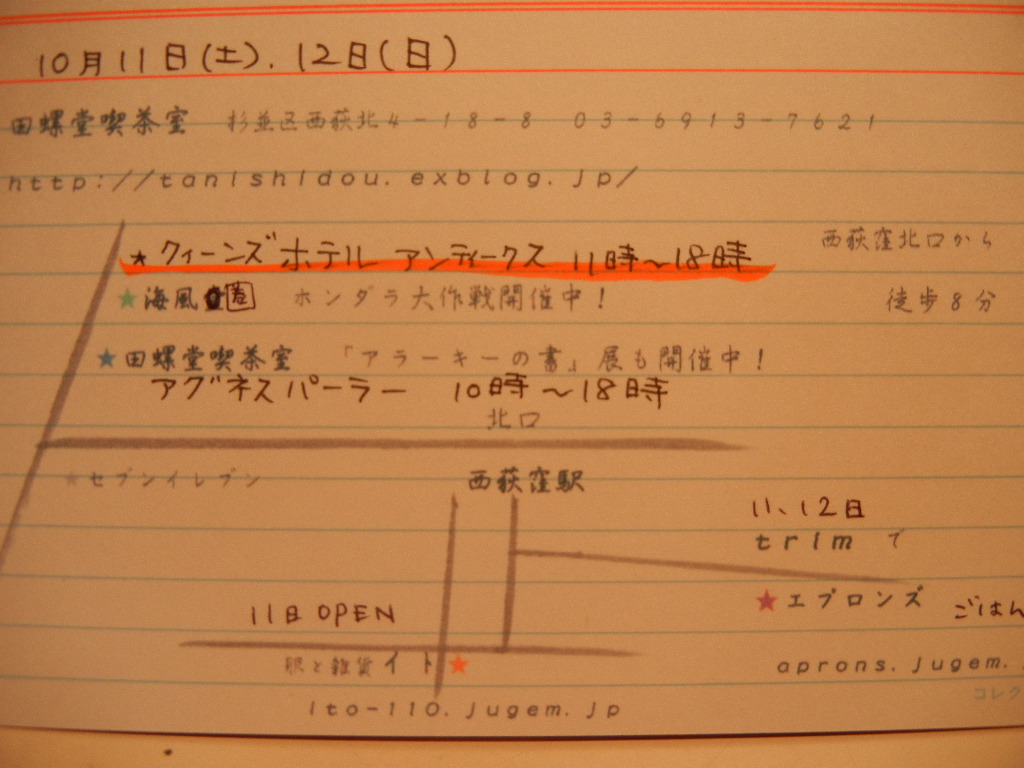 10月11日(土).12日(日)
田螺堂喫茶室 杉並区西荻北4-18-8 03-6913-7621
http://tanishidou.exblog.jp/
★クィーンズホテル アンティークス 11時〜18時
西荻窪北口から
★海風 巻 ホンダラ大作戦開催中!
徒歩8分
★田螺堂喫茶室 「アラーキーの書」展も開催中!
アグネスパーラー 10時〜18時
北口
★セブンイレブン
西荻窪駅
11、12日
trimで
★エプロンズ ごはん
11日OPEN
服と雑貨イト★
aprons.jugem.
コレク
ito-110.jugem.jp